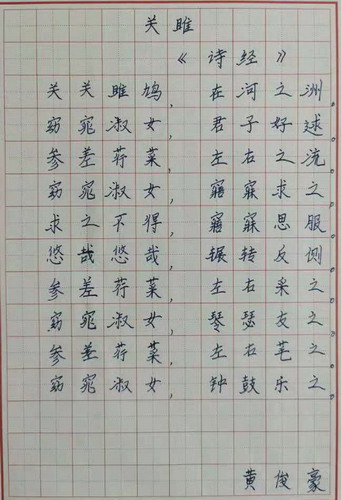 关雎
《诗经》
关关雎鸠，在河之洲
窈窕淑女，君子好逑
参差荇菜，左右之流
窈窕淑女，寤寐求之
求之不得，寤寐思服
悠哉悠哉，辗转反侧
参差荇菜，左右采之
窈窕淑女，琴瑟友之
参差荇菜，左右芼之
窈窕淑女，钟鼓乐之
黄俊豪